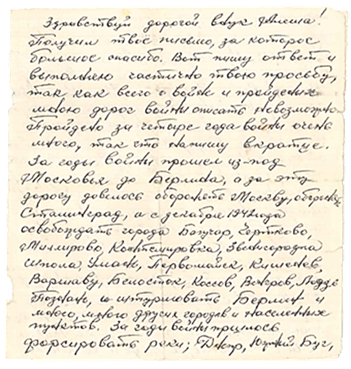 Здравствуй дорогой внук Алеша!
Получил твое письмо, за которое
большое спасибо. Вот пишу ответ и
выполняю частично твою просьбу,
так как всего о войне и пройденных
мною дорог войны описать невозможно.
Пройдено за четыре года войны очень
много, так что напишу вкратце.
За годы войны прошел из-под
Москвы до Берлина, а за эту
дорогу довелось оборонять Москву,
Сталинград, а с декабря 1942 года
освобождать города Богучар, Чертково,
Миллерово, Кантемировка, Звенигородка
Шпола, Умань, Первомайск, Кишинев,
Варшаву, Белосток, Лодзь
Познань, и штурмовать Берлин и
много, много других городов и населенных
пунктов. За годы войны пришлось
форсировать реки; Днепр, Южный Буг,